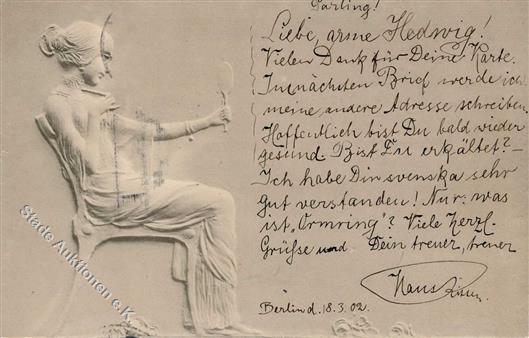 Darling!
Liebe, arme Hedwig!
Vielen Dank für Deine Karte.
Im nächsten Brief werde ich
meine andere Adresse schreiben.
Hoffentlich bist Du bald wieder
gesund. Bist Du erkältet? –
Ich habe Din svenska sehr
gut verstanden! Nur: was
ist „Ormring“? Viele herzl.
Grüsse und Dein treuer, treuer
Hans
Berlin d. 18.3.02.
Stade Auktionen e.K.